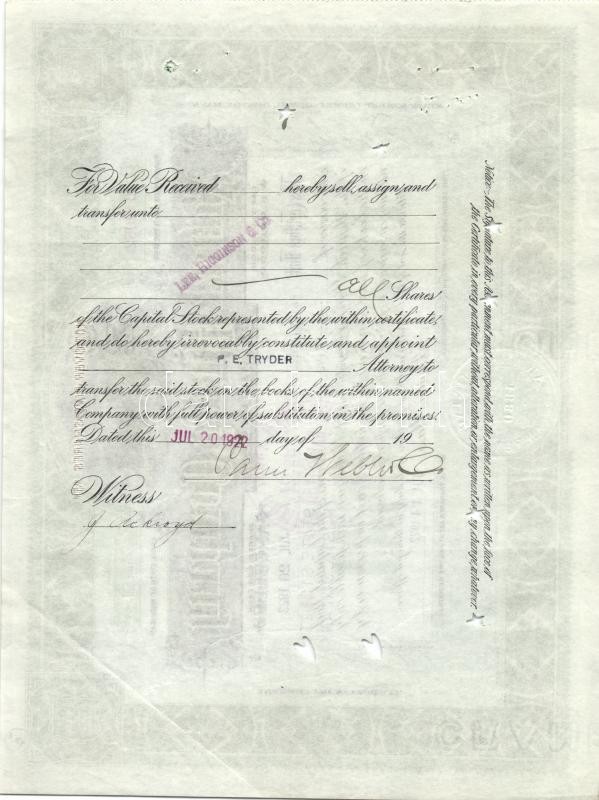 For Value Received hereby sell, assign, and
transfer unto
LEE, HIGGINSON & CO.
all Shares
of the Capital Stock represented by the within certificate,
and do hereby irrevocably constitute and appoint
P. E. TRYDER Attorney to
transfer the said stock on the books of the within named
Company with full power of substitution in the premises.
Dated, this JUL 20 1922 day of 19
Paine Webber & Co
Witness
J Ackroyd
Notice: The Signature to this Assignment must correspond with the name as written upon the face of
the Certificate in every particular without alteration or enlargement or any change whatever.